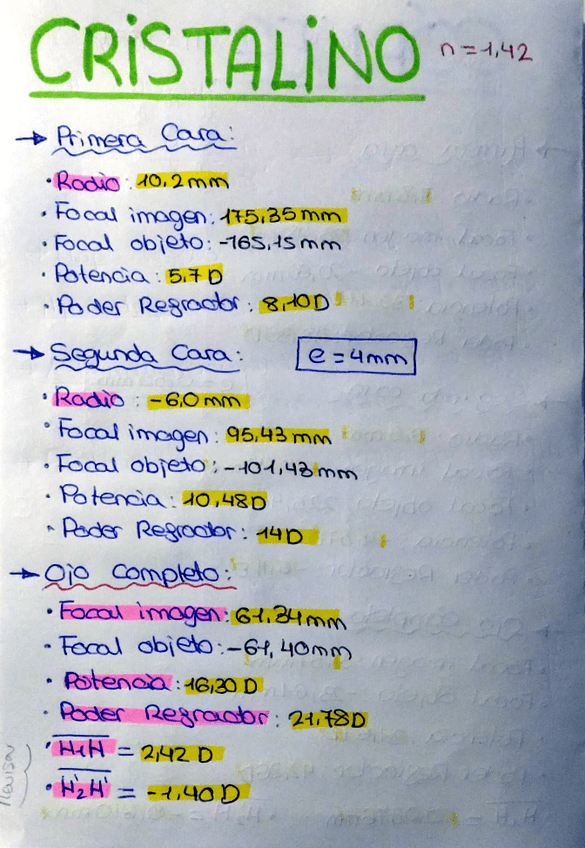 CRISTALINO n = 1,42
→ Primera Cara:
· Radio: 10,2 mm
· Focal imagen: 175,35 mm
· Focal objeto: -165,15 mm
· Potencia: 5,7 D
· Poder Refractor: 8,10 D
→ Segunda Cara: e = 4mm
· Radio: -6,0 mm
· Focal imagen: 95,43 mm
· Focal objeto: -101,43 mm
· Potencia: 10,48 D
· Poder Refractor: 14 D
→ Ojo Completo:
· Focal imagen: 61,34 mm
· Focal objeto: -61,40 mm
· Potencia: 16,30 D
· Poder Refractor: 21,78 D
· H₁H = 2,42 D
· H'₂H' = -1,40 D
Revisar